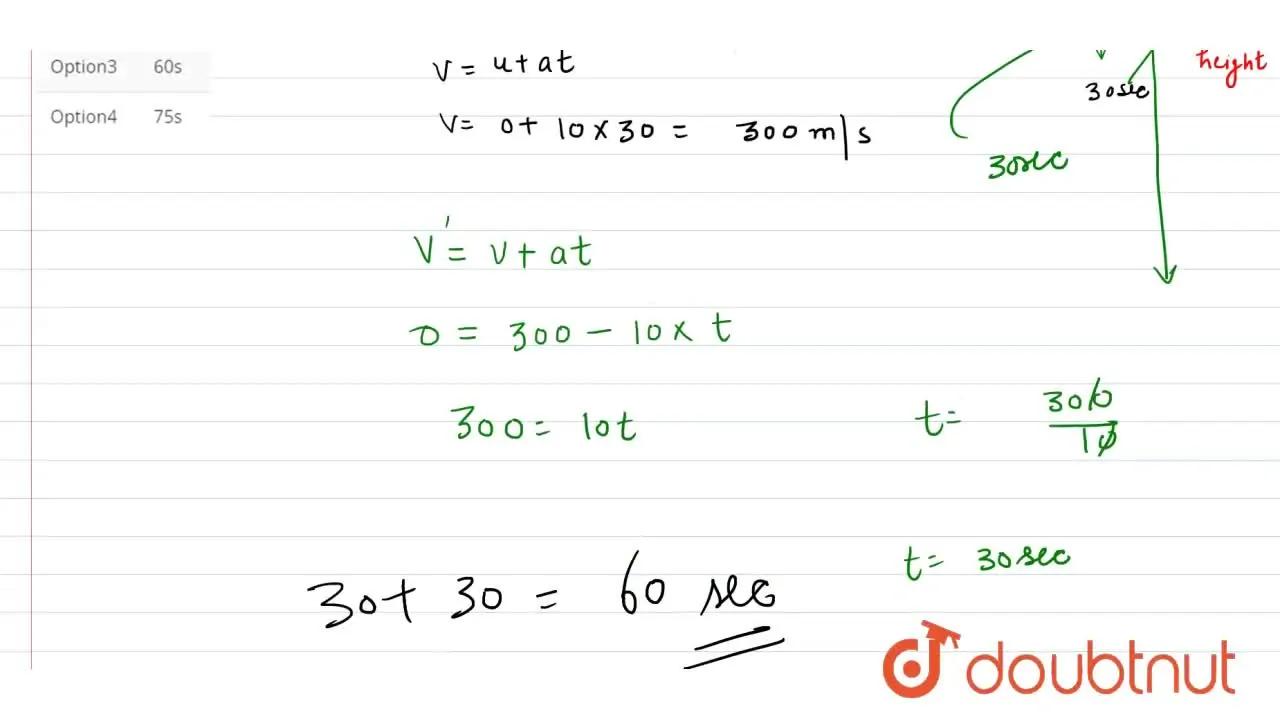 Option3 60s
v = u + at
height
30sec
Option4 75s
v= 0+ 10 x 30 = 300 m/s
30sec
v' = v + at
0 = 300 - 10 x t
300 = 10t
t= 300/10
t= 30sec
30+ 30 = 60 sec
doubtnut